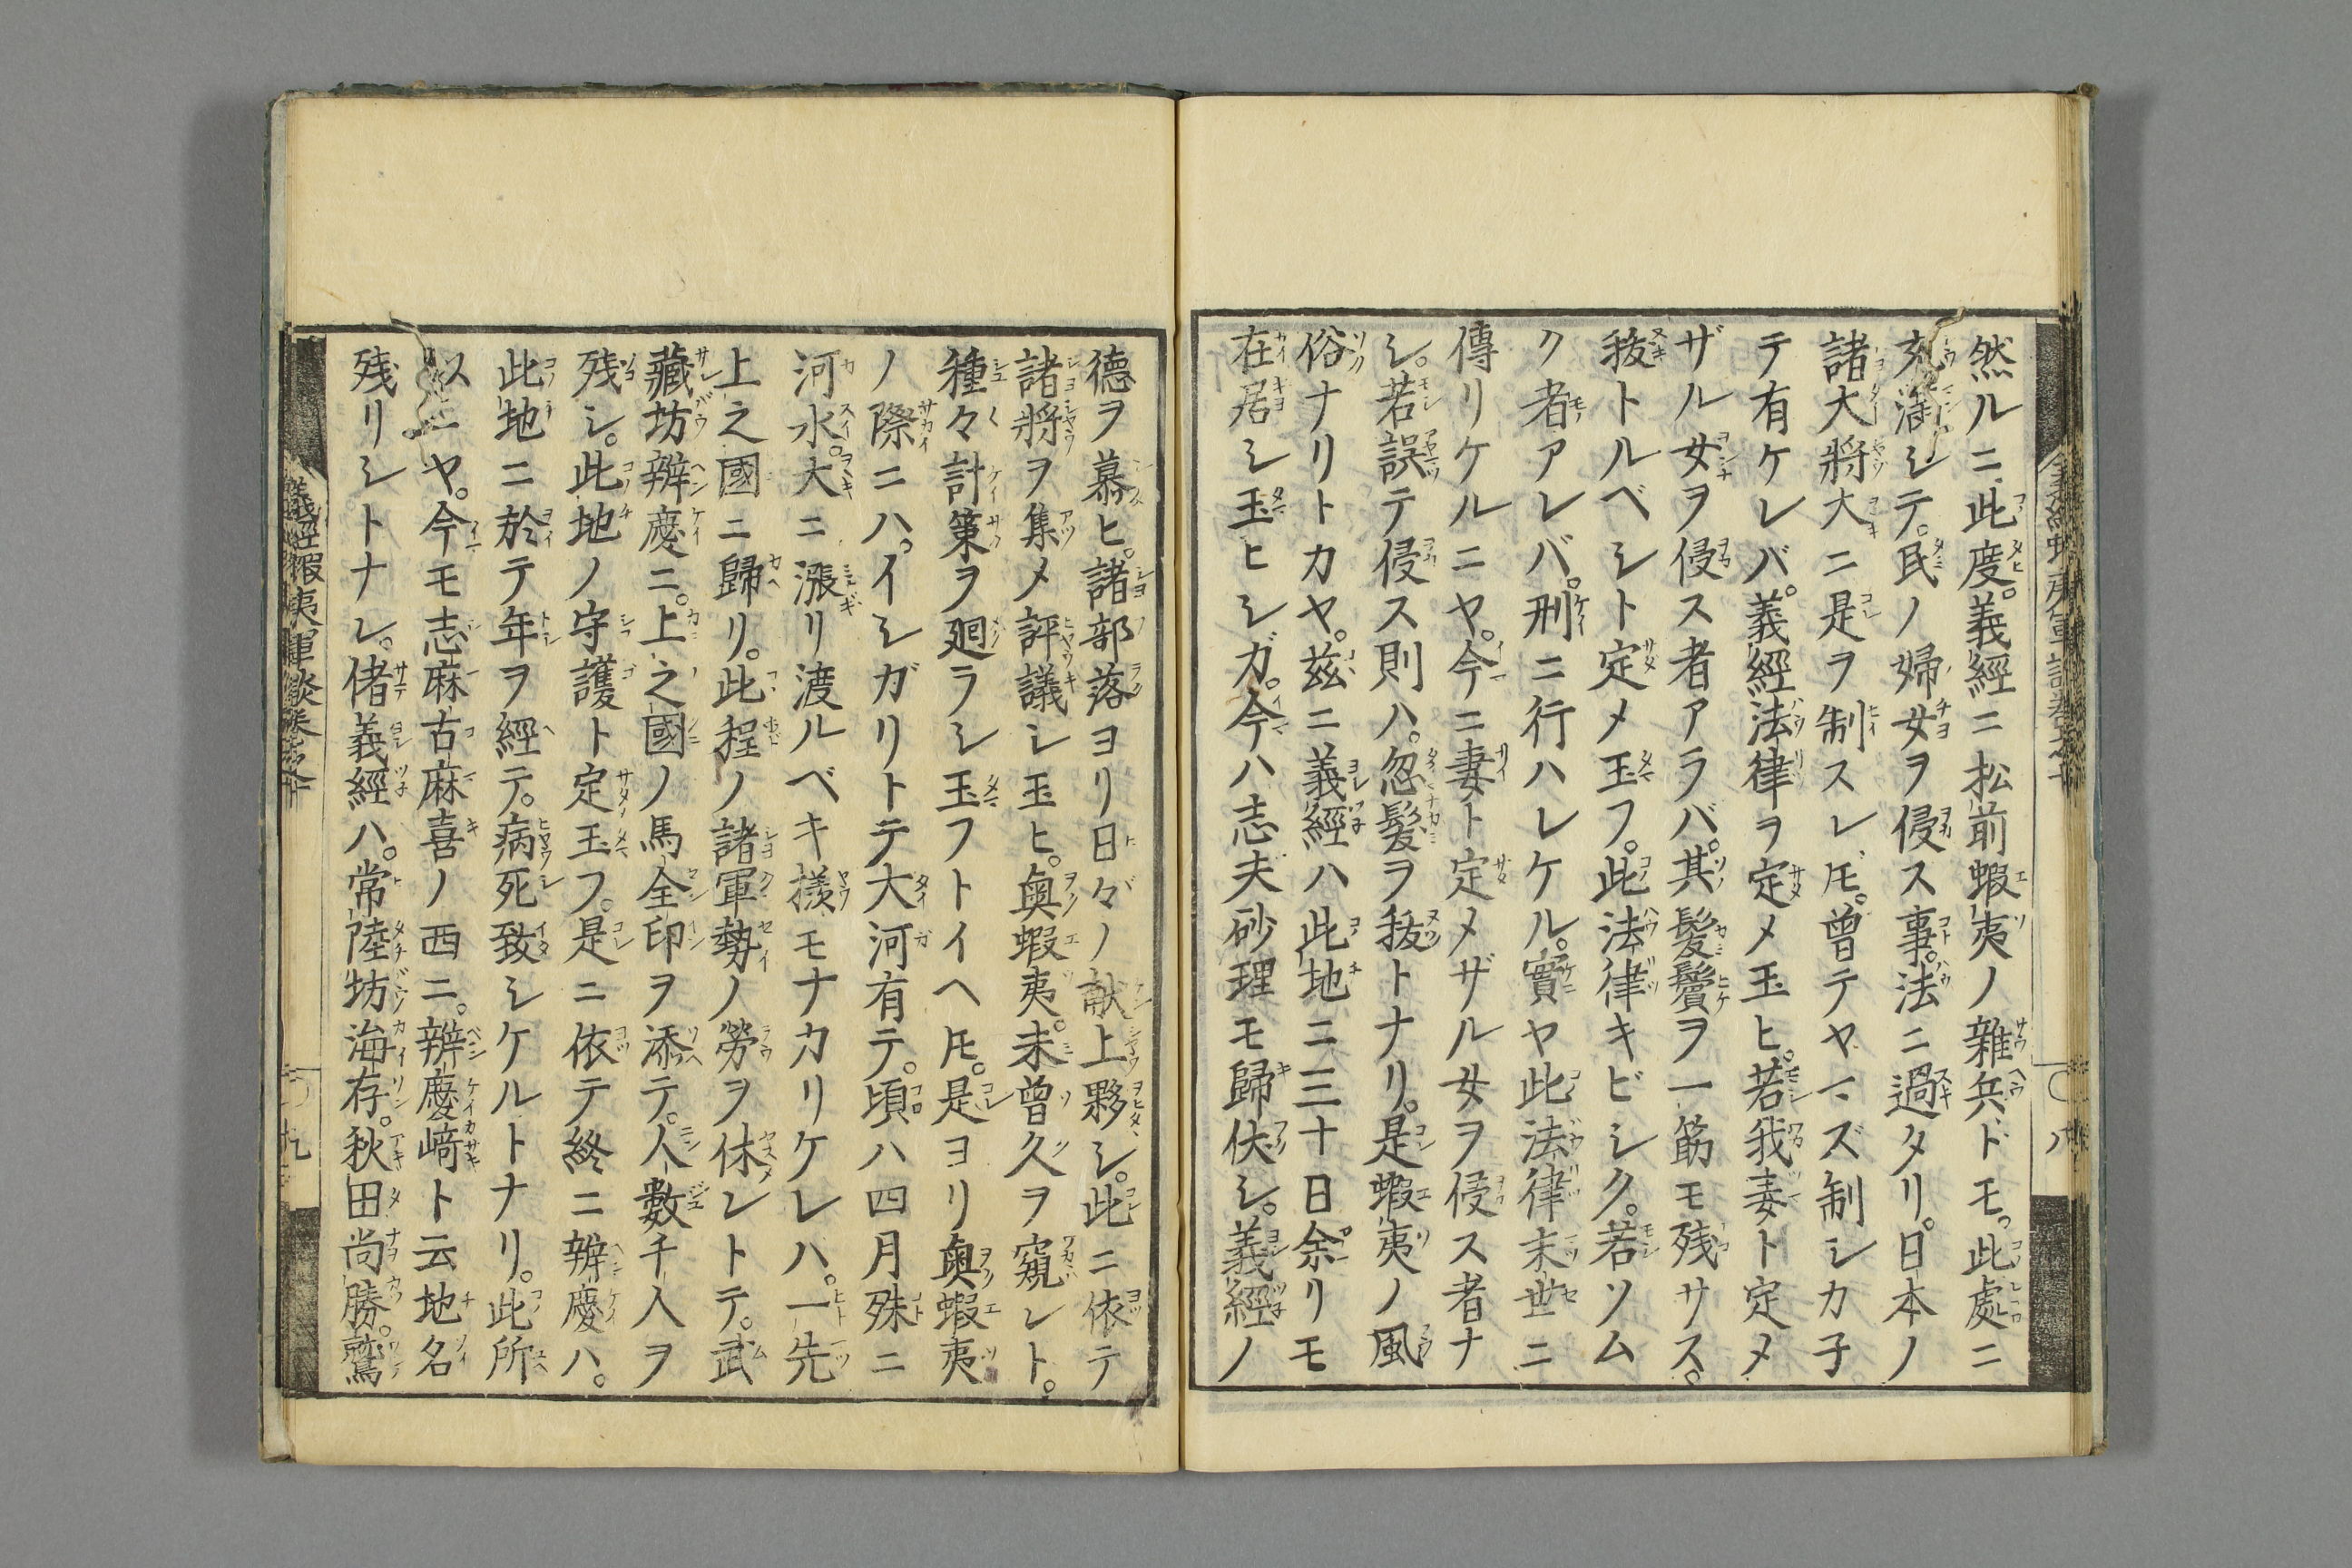 然ルニ此度。義經ニ松前蝦夷ノ雜兵ドモ。此處ニ
充滿シテ。民ノ婦女ヲ侵ス事。法ニ過タリ。日本ノ
諸大將大ニ是ヲ制スレ𪜈。曾テヤマズ制シカ子
テ有ケレバ。義經法律ヲ定メ玉ヒ。若我妻ト定メ
ザル女ヲ侵ス者アラバ。其髪鬢ヲ一筋モ残サス。
抜トルベシト定メ玉フ。此法律キビシク。若ソム
ク者アレバ。刑ニ行ハレケル。實ヤ此法律末世ニ
傳リケルニヤ。今ニ妻ト定メザル女ヲ侵ス者ナ
シ。若誤テ侵ス則ハ。忽髪ヲ抜トナリ。是蝦夷ノ風
俗ナリトカヤ。茲ニ義經ハ此地ニ三十日余リモ
在居シ玉ヒシガ。今ハ志夫砂理モ歸伏シ。義經ノ
德ヲ慕ヒ。諸部落ヨリ日々ノ献上夥シ。此ニ依テ
諸將ヲ集メ評議シ玉ヒ。奥蝦夷。未曾久ヲ窺レト。
種々計策ヲ廻ラシ玉フトイヘ𪜈。是ヨリ奥蝦夷
ノ際ニハ。イシガリトテ大河有テ。頃ハ四月殊ニ
河水。大ニ漲リ渡ルベキ樣モナカリケレハ。一先
上之國ニ歸リ。此程ノ諸軍勢ノ勞ヲ休レトテ。武
藏坊辨慶ニ。上之國ノ馬全印ヲ添テ。人數千人ヲ
残シ。此地ノ守護ト定玉フ。是ニ依テ終ニ辨慶ハ。
此地ニ於テ年ヲ經テ。病死致シケルトナリ。此所
ニヤ。今モ志麻古麻喜ノ西ニ。辨慶﨑ト云地名
残リシトナレ。偖義經ハ。常陸坊海存。秋田尚勝。鷲
義經蝦夷軍談卷
八
九